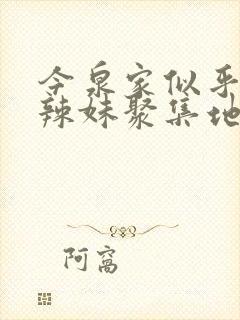 今泉家似乎
辣妹聚集地
阿窩